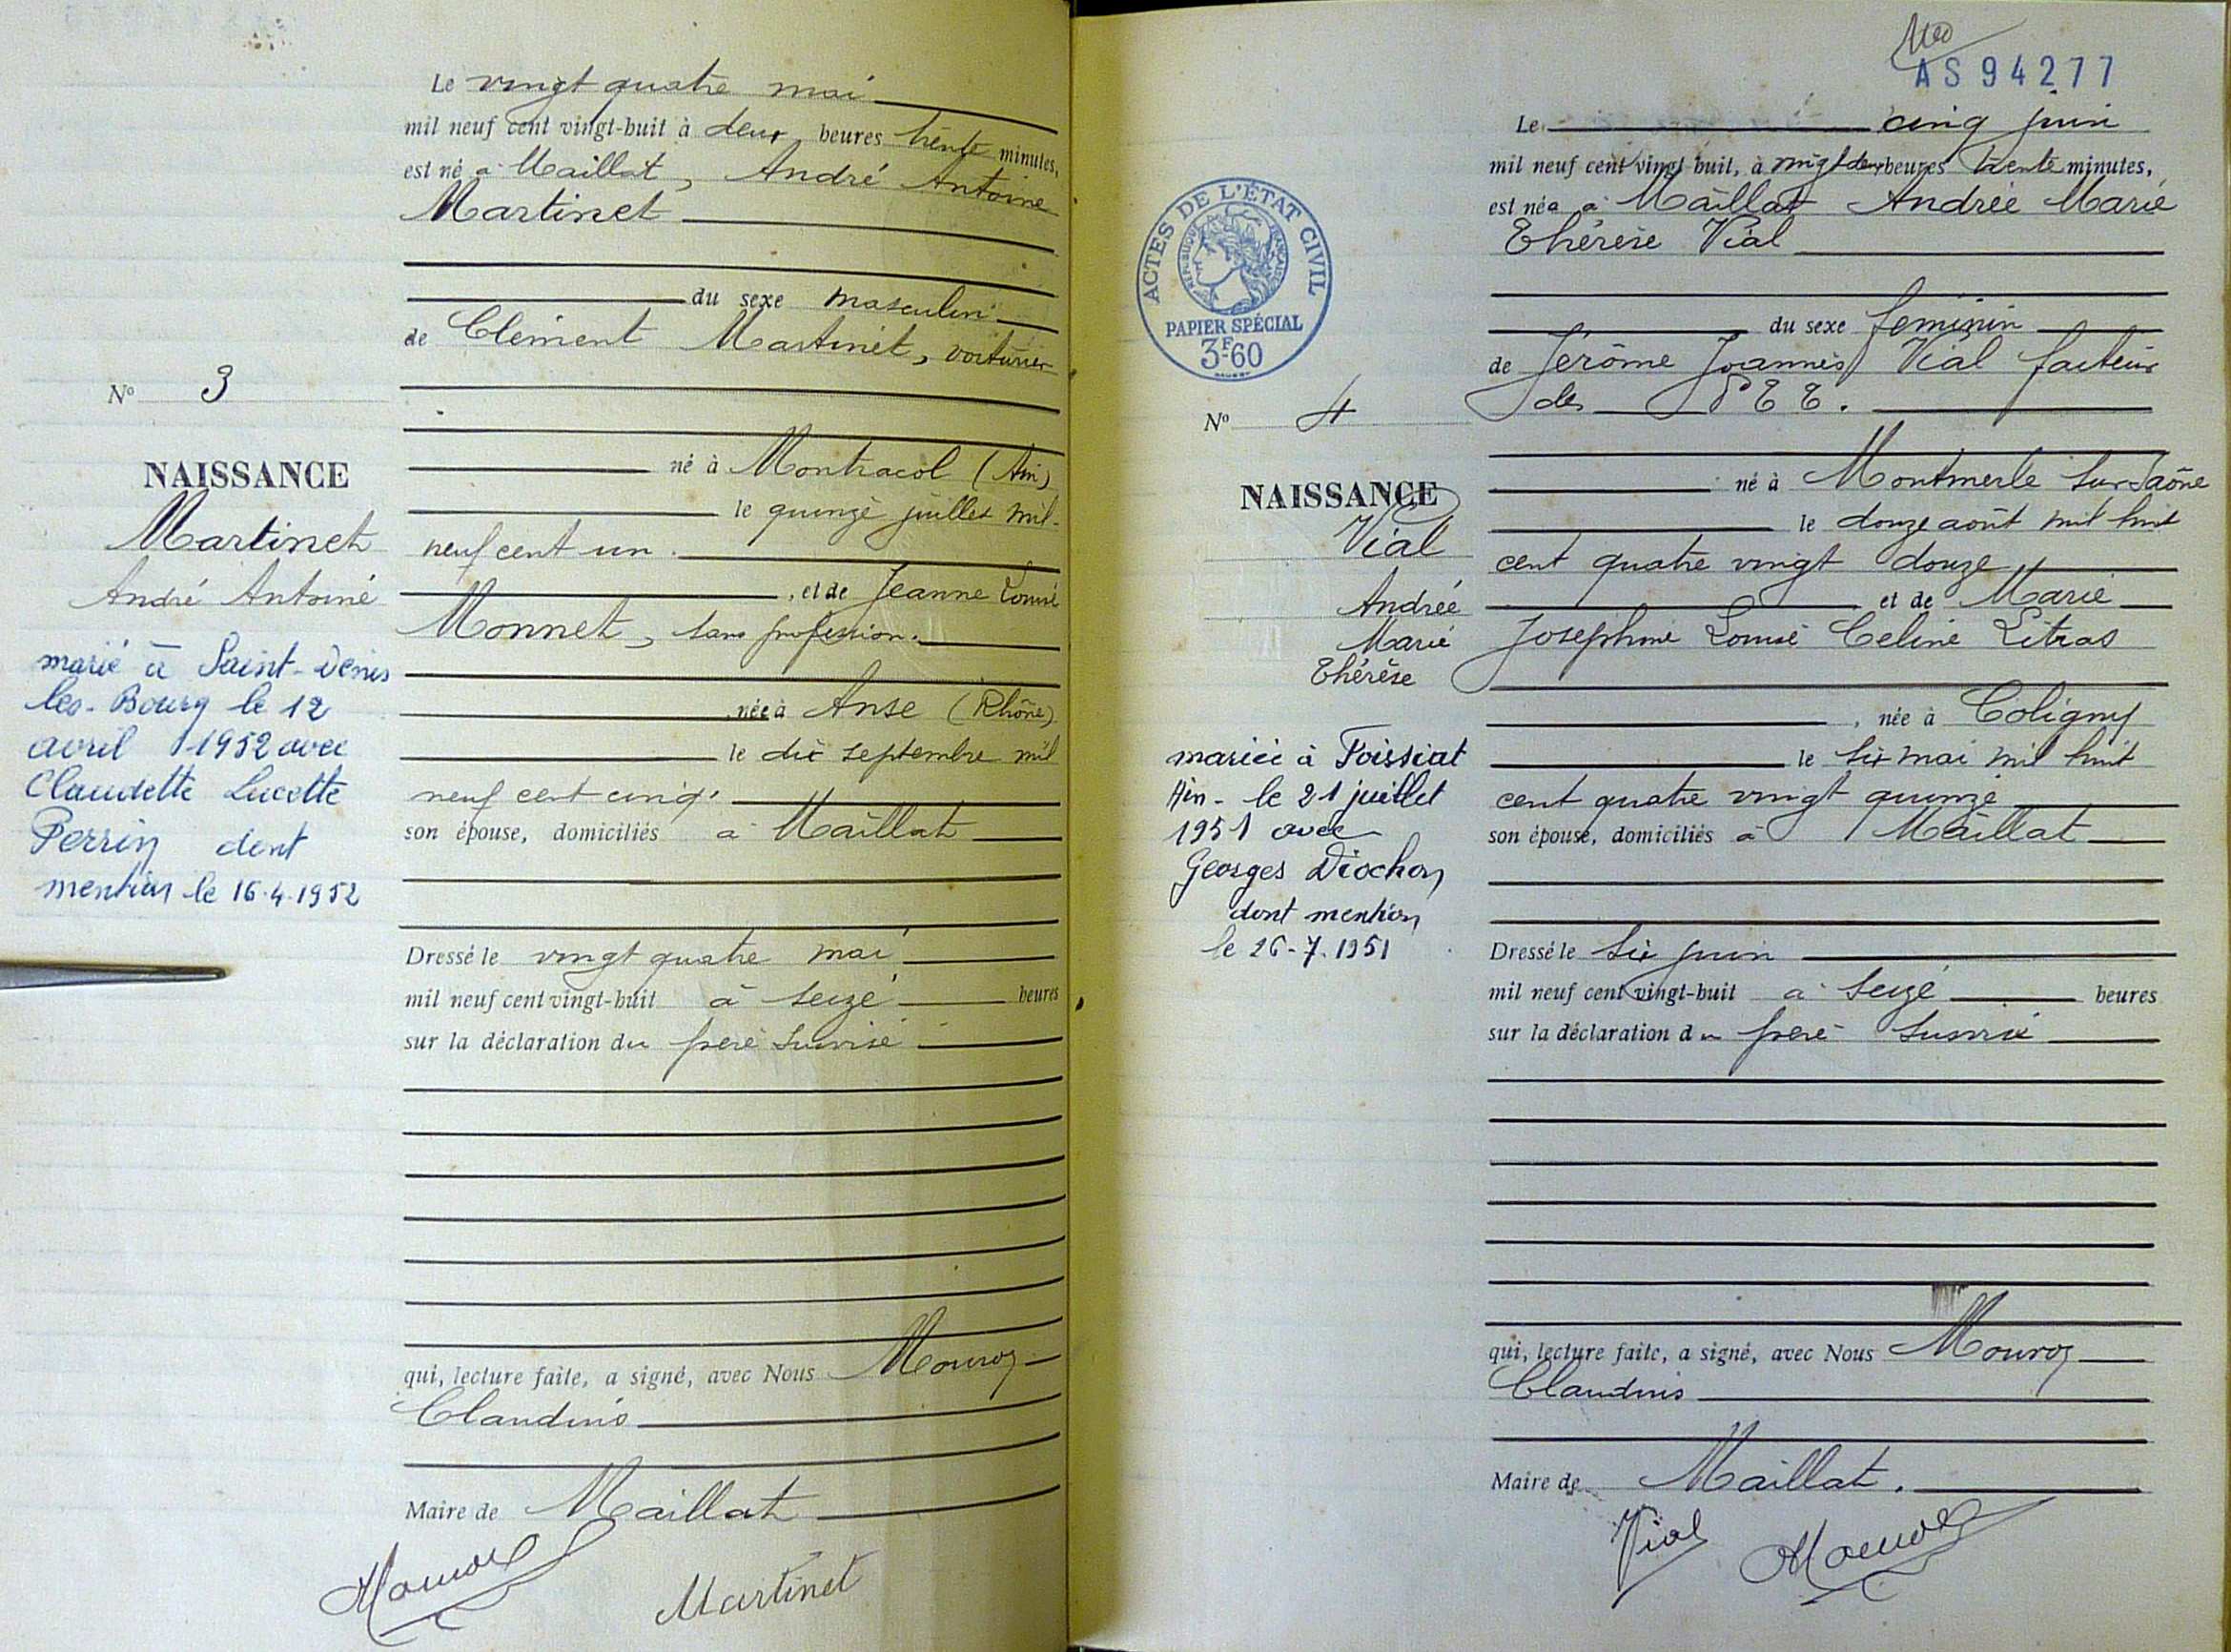 Le vingt quatre mai
mil neuf cent vingt-huit à deux heures trente minutes,
est né à Maillat, André Antoine
Martinet
du sexe masculin
de Clément Martinet, voiturier
né à Montracol (Ain)
le quinze juillet mil
neuf cent un.
, et de Jeanne Louise
Monnet, sans profession.
née à Anse (Rhône)
le dix septembre mil
neuf cent cinq,
son épouse, domiciliés à Maillat
Dressé le vingt quatre mai
mil neuf cent vingt-huit à seize heures
sur la déclaration du père susvisé
qui, lecture faite, a signé, avec Nous Mouroz
Claudius
Maire de Maillat
Mouroz
Martinet
No 3
NAISSANCE
Martinet
André Antoine
marié à Saint-Denis
les-Bourg le 12
avril 1952 avec
Claudette Lucette
Perrin dont
mention le 16.4.1952
AS94277
Le cinq juin
mil neuf cent vingt huit, à vingt deux heures trente minutes,
est née à Maillat Andrée Marie
Thérèse Vial
du sexe féminin
de Jérôme Joannès Vial facteur
des PTT.
né à Montmerle sur Saône
le douze août mil huit
cent quatre vingt douze
et de Marie
Joséphine Louise Celine Litras
, née à Coligny
le six mai mil huit
cent quatre vingt quinze
son épouse, domiciliés à Maillat
Dressé le six juin
mil neuf cent vingt-huit à seize heures
sur la déclaration du père susvisé
qui, lecture faite, a signé, avec Nous Mouroz
Claudius
Maire de Maillat.
Vial
Mouroz
ACTES DE L'ÉTAT CIVIL
RÉPUBLIQUE FRANÇAISE
PAPIER SPÉCIAL
3F60
No 4
NAISSANCE
Vial
Andrée
Marie
Thérèse
mariée à Foissiat
Ain - le 21 juillet
1951 avec
Georges Diochon
dont mention
le 26-7.1951